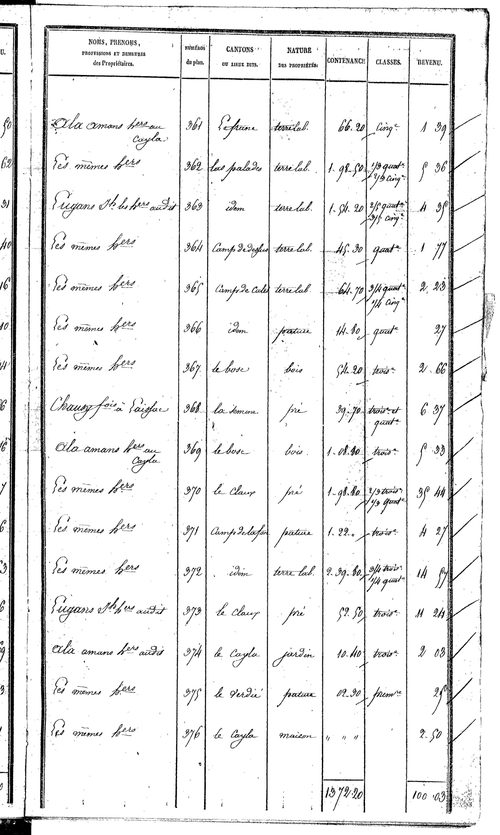 NOMS, PRENOMS, PROFESSIONS ET DEMEURES des Propriétaires. NUMÉROS du plan. CANTONS OU LIEUX DITS. NATURE DES PROPRIÉTÉS. CONTENANCE CLASSES. REVENU.
ala amans hers au Cayla 361 terre lab. 66.20 cinqe 1 39
Les mêmes hers 362 las palades terre lab. 1.98.50 1/3 quate 2/3 cinqe 5 36
Eugans Jh les hers audit 363 idem terre lab. 1.54.20 2/5 quate 3/5 cinqe 4 35
Les mêmes hers 364 Camp de dessus terre lab. 45.30 quate 1 77
Les mêmes hers 365 Camp de Calet terre lab. 64.70 3/4 quate 1/4 cinqe 2 23
Les mêmes hers 366 idem pature 14.80 quate 27
Les mêmes hers 367 le bosc bois 54.20 troise 2 66
Chauzy fois à 368 la pré 39.70 troise et quate 6 37
ala amans hers au Cayla 369 le bosc bois 1.08.80 troise 5 33
Les mêmes hers 370 le Claux pré 1.98.80 2/3 troise 1/3 quate 35 44
Les mêmes hers 371 pature 1.22. troise 4 27
Les mêmes hers 372 idem terre lab. 2.39.80 3/4 troise 1/4 quate 14 57
Eugans Jh hers audit 373 le Claux pré 52.50 troise 11 24
ala amans hers audit 374 le Cayla jardin 10.40 troise 2 03
Les mêmes hers 375 le verdié pature 02.30 premre 25
Les mêmes hers 376 le Cayla maison " " " 2.50
1372.20 100.03